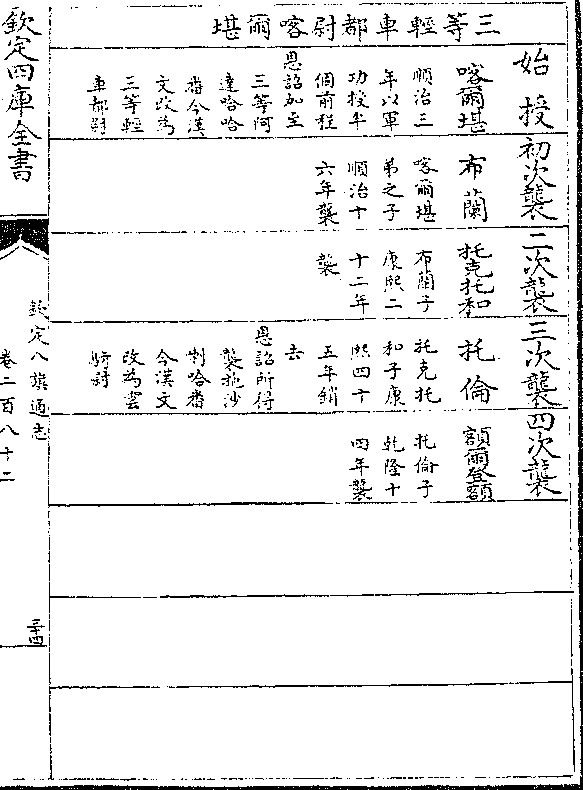 三等輕車都尉喀爾堪
始授
喀爾堪
順治三
年以軍
功授半
個前程
恩詔加至
三等阿
達哈哈
番今漢
文改為
三等輕
車都尉
初次襲
布蘭
喀爾堪
弟之子
順治十
六年襲
二次襲
托克托和
布蘭子
康熙二
十二年
襲
三次襲
托倫
托克托
和子康
熙四十
五年銷
去
恩詔所得
襲拖沙
喇哈番
今漢文
改為雲
騎尉
四次襲
額爾登額
托倫子
乾隆十
四年襲
欽定四庫全書
欽定八旗通志
卷二百八十二
三十四